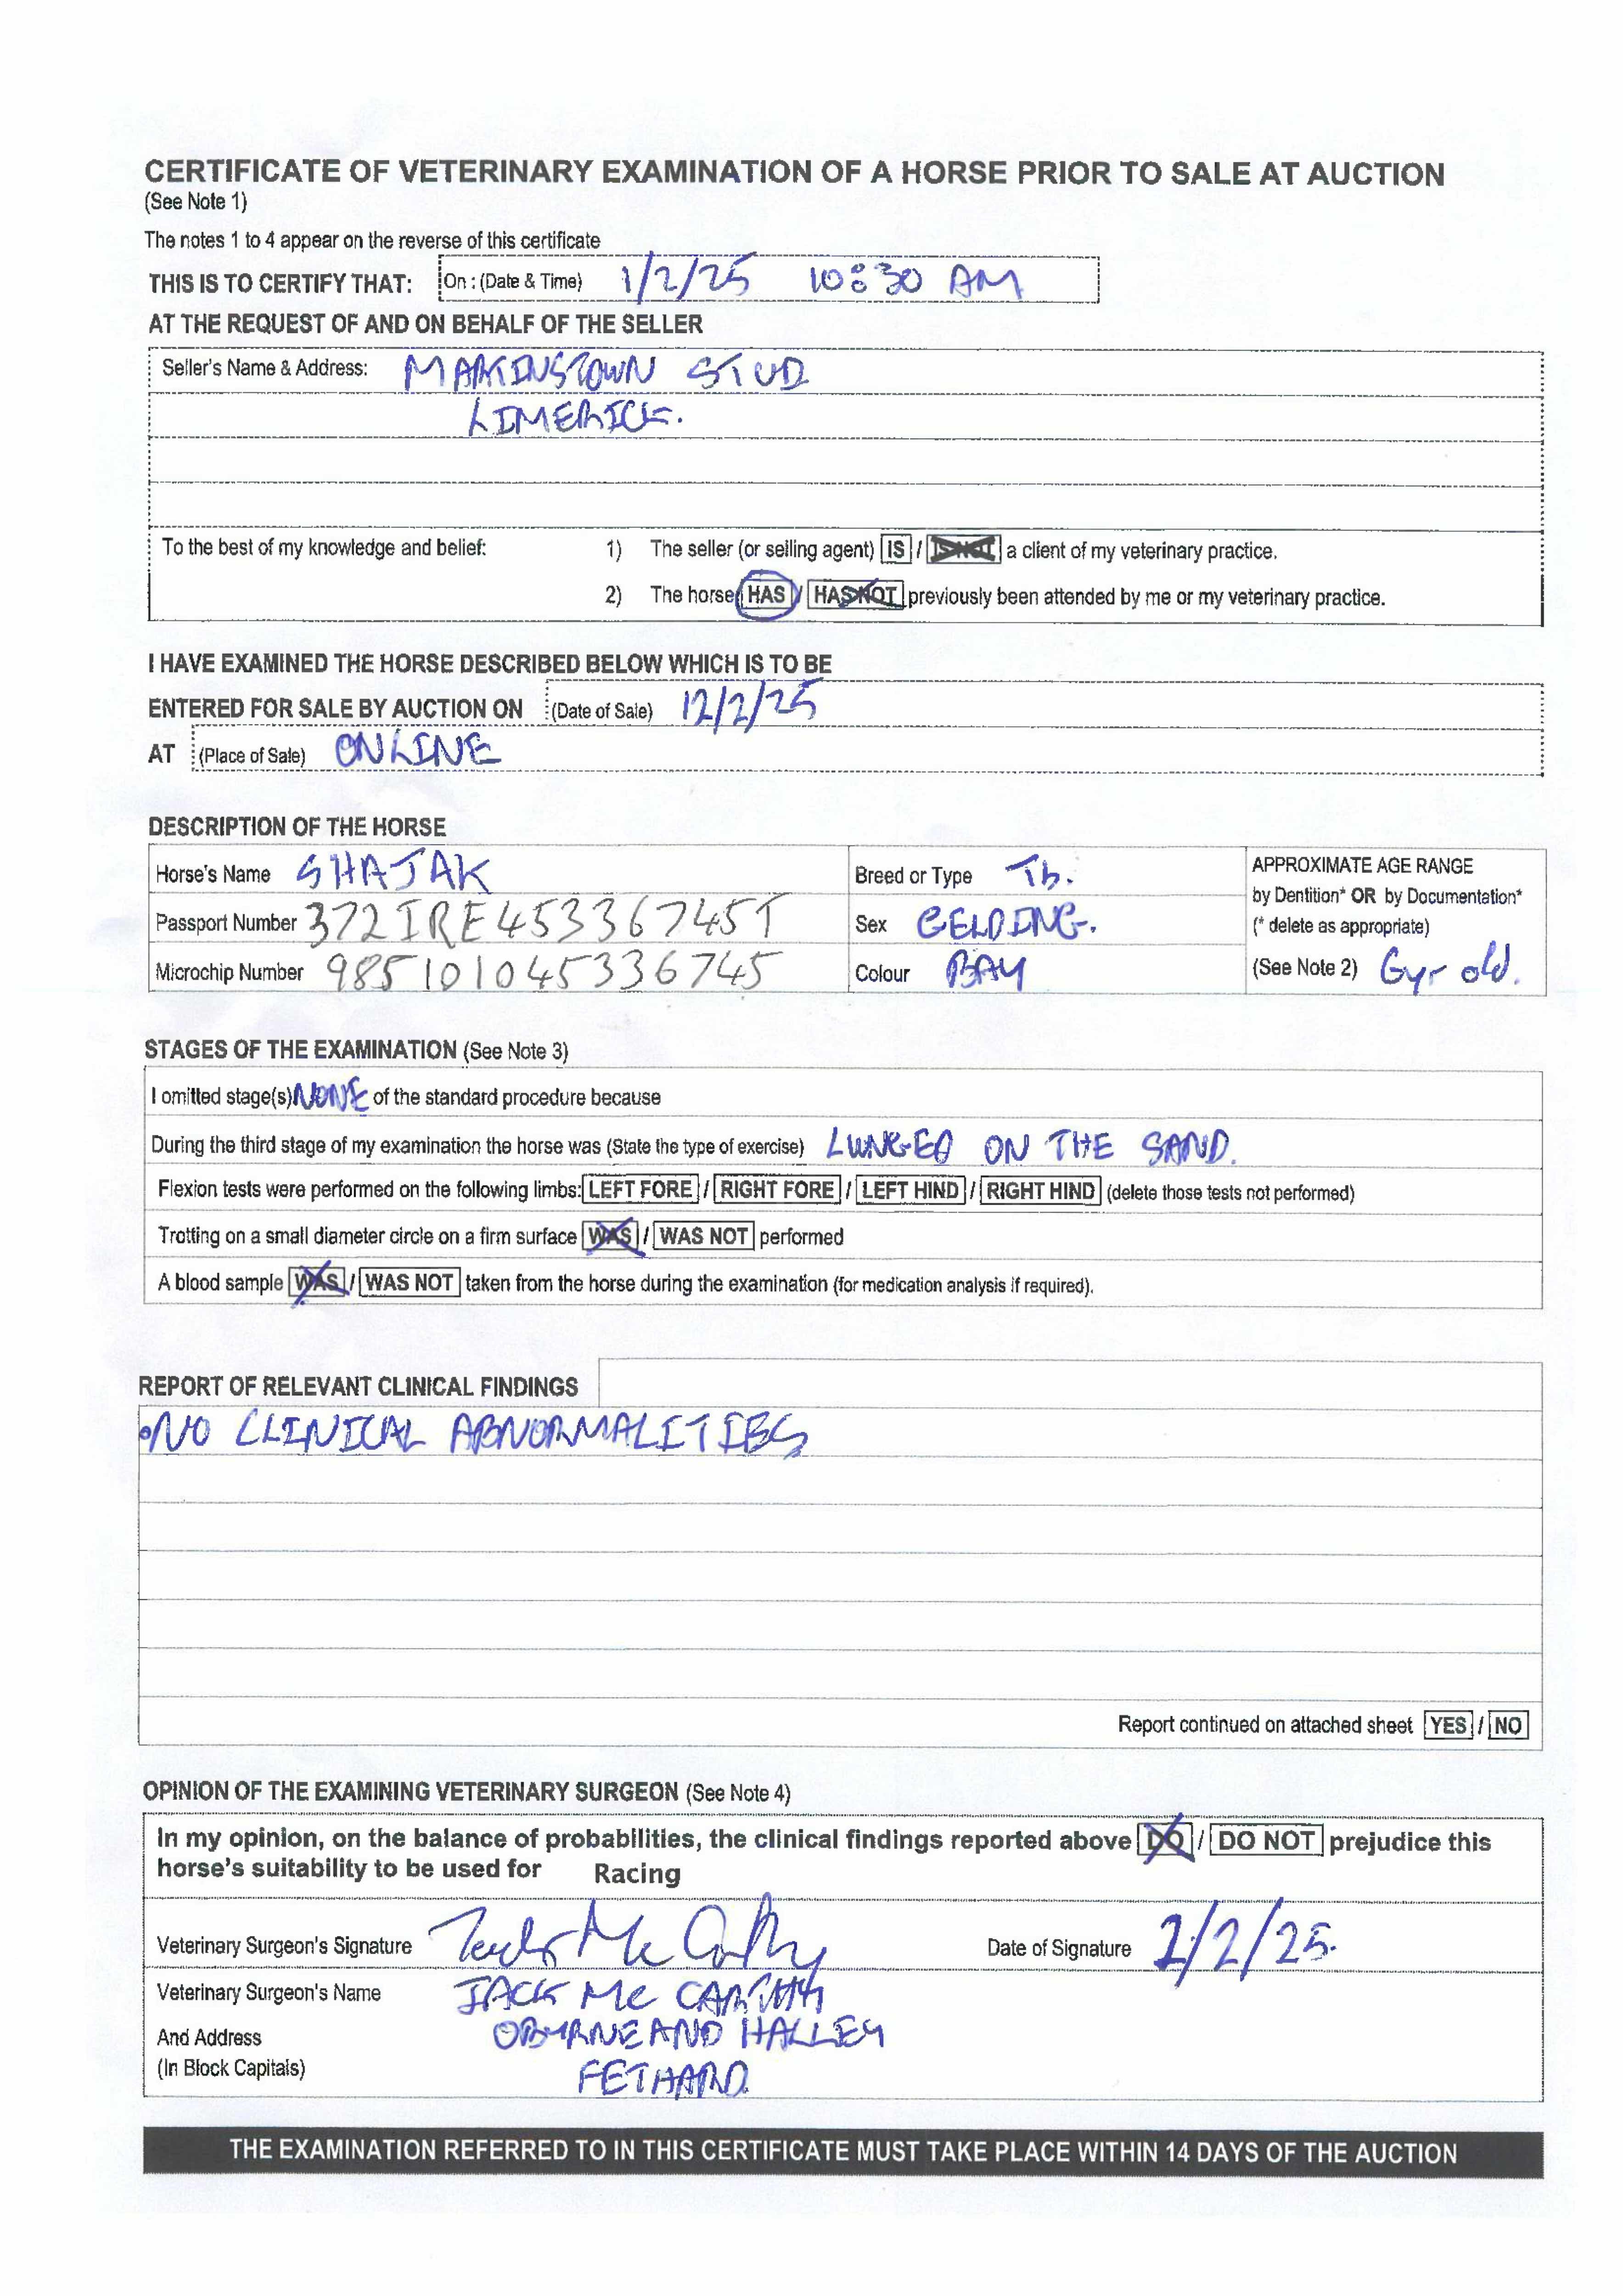 CERTIFICATE OF VETERINARY EXAMINATION OF A HORSE PRIOR TO SALE AT AUCTION
(See Note 1)
The notes 1 to 4 appear on the reverse of this certificate
THIS IS TO CERTIFY THAT: On : (Date & Time) 1/2/25 10:30 AM
AT THE REQUEST OF AND ON BEHALF OF THE SELLER
Seller's Name & Address: MARTINSTOWN STUD
LIMERICK.
To the best of my knowledge and belief: 1) The seller (or selling agent) IS / IS NOT a client of my veterinary practice.
2) The horse HAS / HAS NOT previously been attended by me or my veterinary practice.
I HAVE EXAMINED THE HORSE DESCRIBED BELOW WHICH IS TO BE
ENTERED FOR SALE BY AUCTION ON (Date of Sale) 12/2/25
AT (Place of Sale) ONLINE
DESCRIPTION OF THE HORSE
Horse's Name SHAJAK Breed or Type Tb. APPROXIMATE AGE RANGE
by Dentition* OR by Documentation*
Passport Number 372IRE45336745T Sex GELDING. (* delete as appropriate)
Microchip Number 985101045336745 Colour BAY (See Note 2) 6yr old.
STAGES OF THE EXAMINATION (See Note 3)
I omitted stage(s) NONE of the standard procedure because
During the third stage of my examination the horse was (State the type of exercise) LUNGED ON THE SAND.
Flexion tests were performed on the following limbs: LEFT FORE / RIGHT FORE / LEFT HIND / RIGHT HIND (delete those tests not performed)
Trotting on a small diameter circle on a firm surface WAS / WAS NOT performed
A blood sample WAS / WAS NOT taken from the horse during the examination (for medication analysis if required).
REPORT OF RELEVANT CLINICAL FINDINGS
•NO CLINICAL ABNORMALITIES
Report continued on attached sheet YES / NO
OPINION OF THE EXAMINING VETERINARY SURGEON (See Note 4)
In my opinion, on the balance of probabilities, the clinical findings reported above DO / DO NOT prejudice this
horse's suitability to be used for Racing
Veterinary Surgeon's Signature Date of Signature 1/2/25.
Veterinary Surgeon's Name JACK Mc CARTHY
And Address OBYRNE AND HALLEY
(In Block Capitals) FETHARD.
THE EXAMINATION REFERRED TO IN THIS CERTIFICATE MUST TAKE PLACE WITHIN 14 DAYS OF THE AUCTION